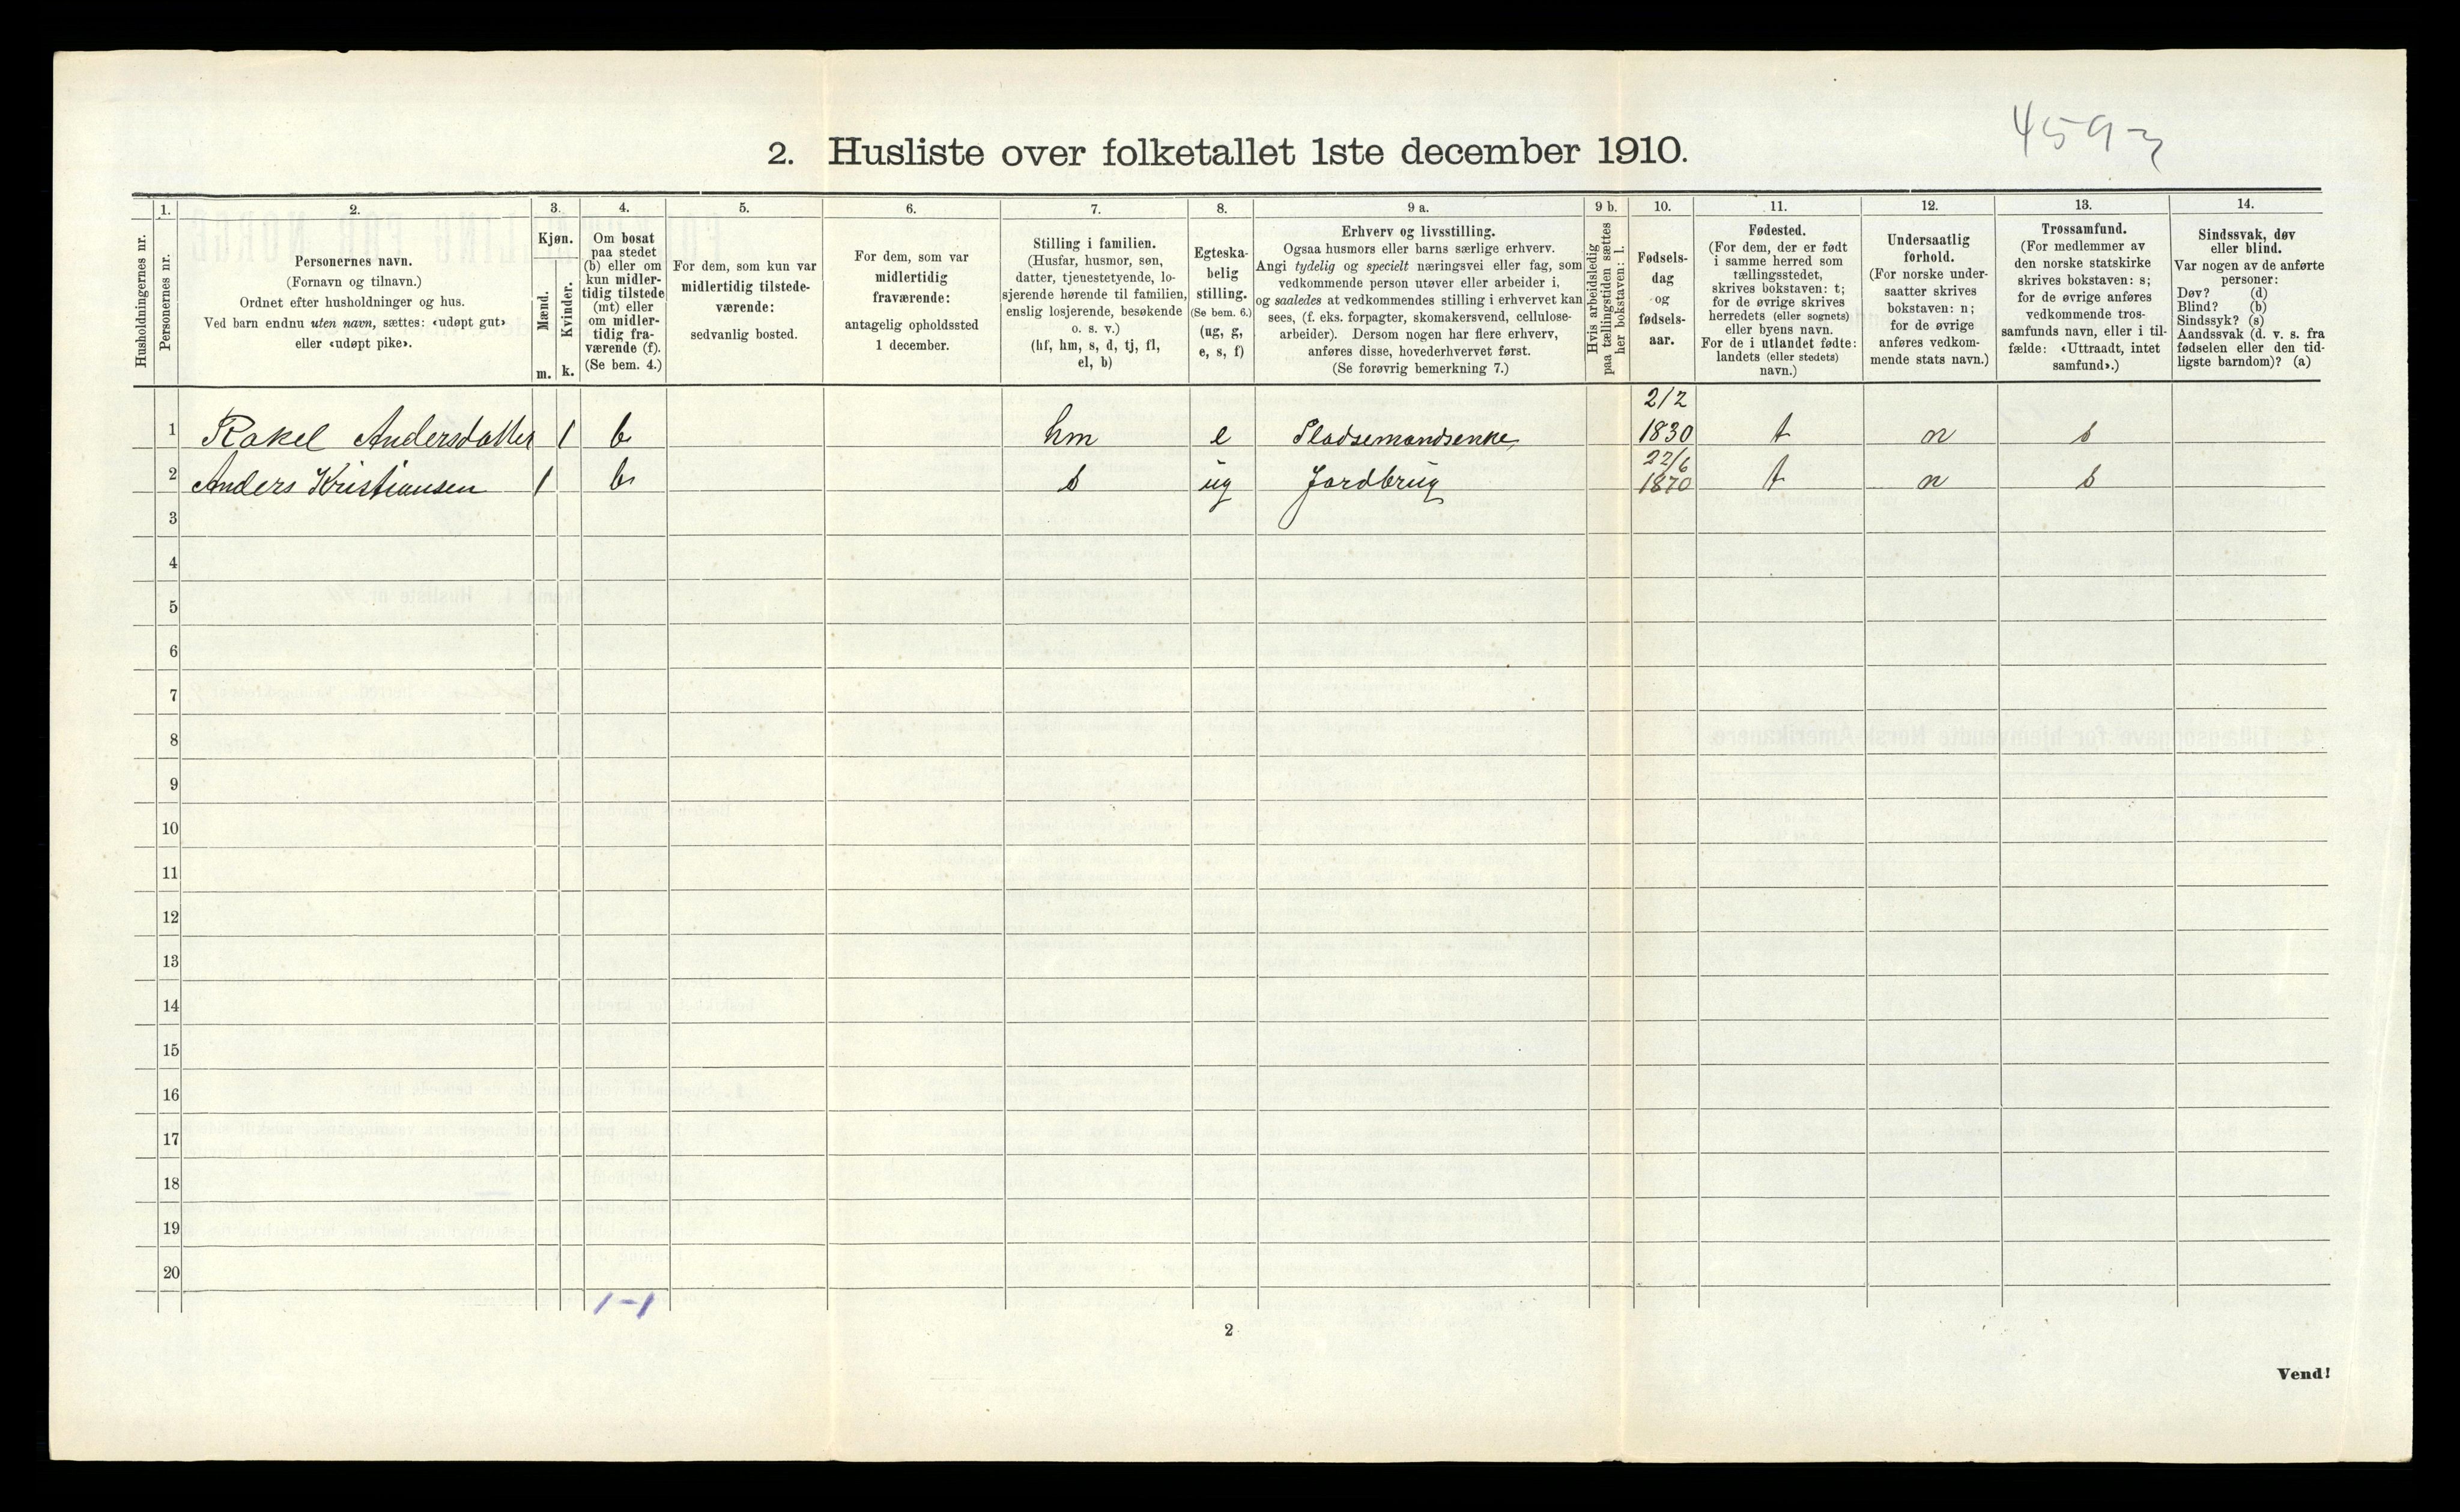 4593
2. Husliste over folketallet 1ste december 1910.
Husholdningernes nr.
1.
Personernes nr.
2.
Personernes navn.
(Fornavn og tilnavn.)
Ordnet efter husholdninger og hus.
Ved barn endnu uten navn, sættes: «udøpt gut»
eller «udøpt pike».
3.
Kjøn.
Mænd.
m.
Kvinder.
k.
4.
Om bosat
paa stedet
(b) eller om
kun midler-
tidig tilstede
(mt) eller
om midler-
tidig fra-
værende (f).
(Se bem. 4.)
5.
For dem, som kun var
midlertidig tilstede-
værende:
sedvanlig bosted.
6.
For dem, som var
midlertidig
fraværende:
antagelig opholdssted
1 december.
7.
Stilling i familien.
(Husfar, husmor, søn,
datter, tjenestetyende, lo-
sjerende hørende til familien,
enslig losjerende, besøkende
o. s. v.)
(hf, hm, s, d, tj, fl,
el, b)
8.
Egteska-
belig
stilling.
(Se bem. 6.)
(ug, g,
e, s, f)
9 a.
Erhverv og livsstilling.
Ogsaa husmors eller barns særlige erhverv.
Angi tydelig og specielt næringsvei eller fag, som
vedkommende person utøver eller arbeider i,
og saaledes at vedkommendes stilling i erhvervet kan
sees, (f. eks. forpagter, skomakersvend, cellulose-
arbeider). Dersom nogen har flere erhverv,
anføres disse, hovederhvervet først.
(Se forøvrig bemerkning 7.)
9 b.
Hvis arbeidsledig
paa tællingstiden sættes
her bokstaven: l.
10.
Fødsels-
dag
og
fødsels-
aar.
11.
Fødested.
(For dem, der er født
i samme herred som
tællingsstedet,
skrives bokstaven: t;
for de øvrige skrives
herredets (eller sognets)
eller byens navn.
For de i utlandet fødte:
landets (eller stedets)
navn.)
12.
Undersaatlig
forhold.
(For norske under-
saatter skrives
bokstaven: n;
for de øvrige
anføres vedkom-
mende stats navn.)
13.
Trossamfund.
(For medlemmer av
den norske statskirke
skrives bokstaven: s;
for de øvrige anføres
vedkommende tros-
samfunds navn, eller i til-
fælde: «Uttraadt, intet
samfund».)
14.
Sindssvak, døv
eller blind.
Var nogen av de anførte
personer:
Døv? (d)
Blind? (b)
Sindssyk? (s)
Aandssvak (d. v. s. fra
fødselen eller den tid-
ligste barndom)? (a)
2/2
1 Rakel Andersdatter 1 b hm e Pladsemandsenke 1830 t n s
22/6
2 Anders Kristiansen 1 b s ug Jordbrug 1870 t n s
3
4
5
6
7
8
9
10
11
12
13
14
15
16
17
18
19
20
1-1
2
Vend!